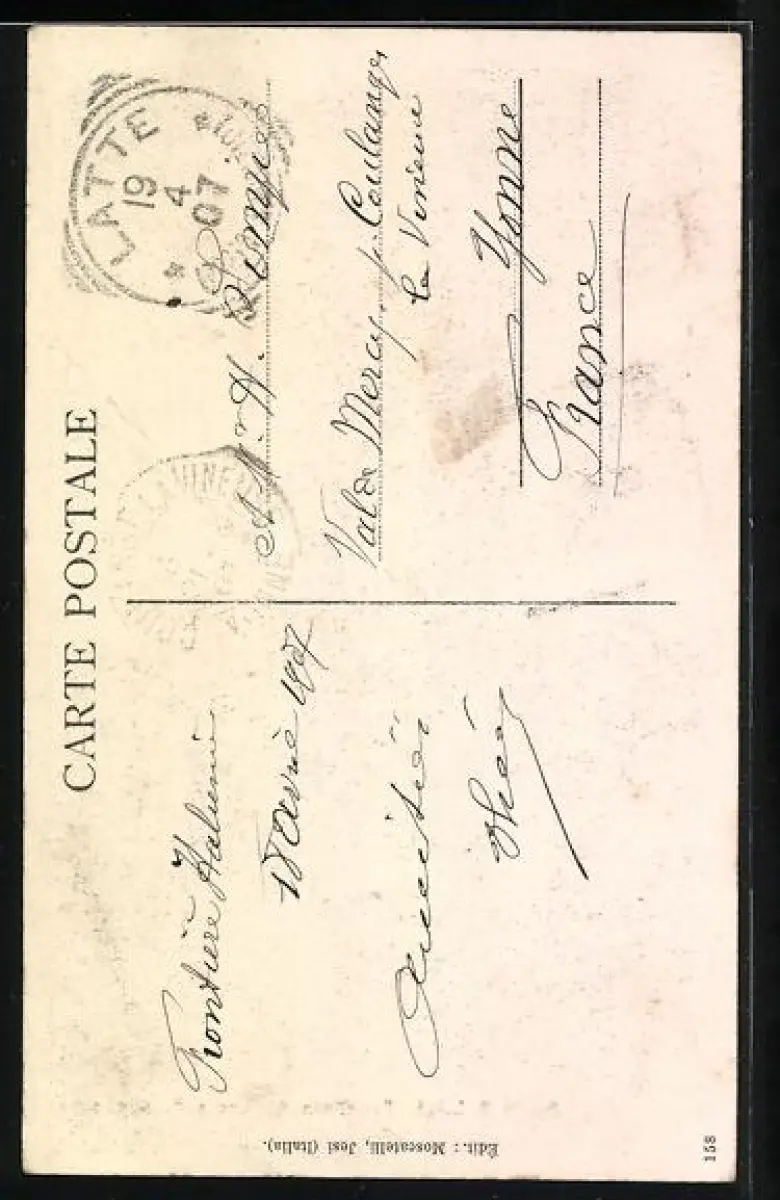 CARTE POSTALE
Frontière Italienne
18 avril 1907
Amitiés
LATTE
19
4
07
A Mr H.
Val de Mercy, p. Coulanges
la Vineuse
Yonne
France
Édit.: Moscatelli, Jesi (Italia).
158